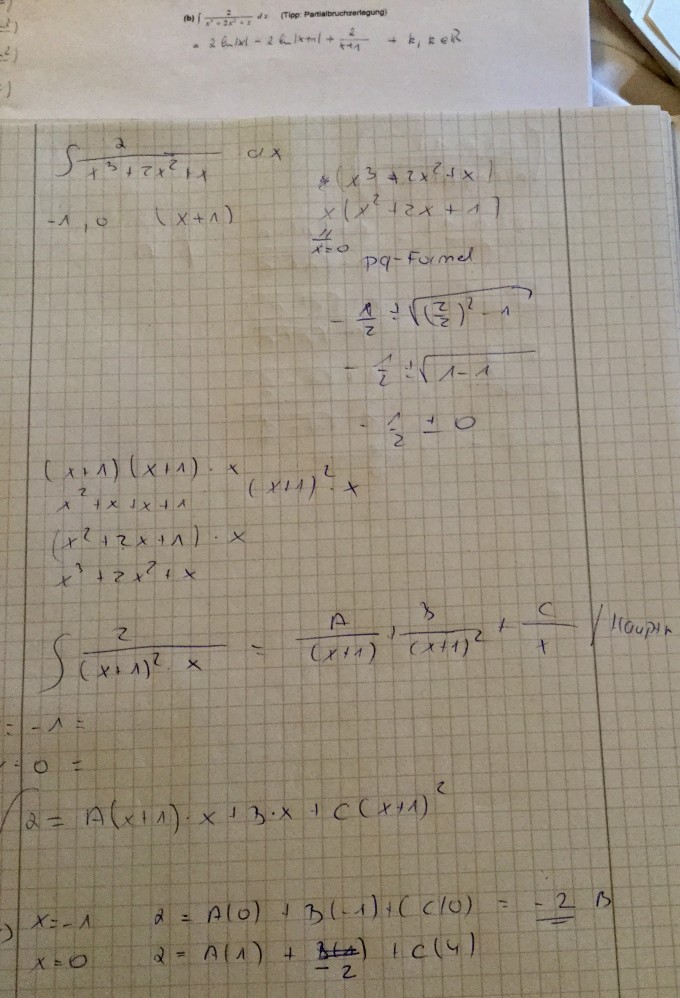 (b) ∫ 2/(x³ + 2x² + x) dx (Tipp: Partialbruchzerlegung)
= 2 ln|x| - 2 ln|x+1| + 2/(x+1) + k, k ∈ ℝ
∫ 2/(x³ + 2x² + x) dx
(x³ + 2x² + x)
-1, 0 (x+1)
x(x² + 2x + 1)
x=0
pq-Formel
- 1/2 ± √((2/2)² - 1
- 1/2 ± √(1 - 1
- 1/2 ± 0
(x+1)(x+1) · x
x² + x + x + 1
(x+1)² · x
(x² + 2x + 1) · x
x³ + 2x² + x
∫ 2/((x+1)² · x) = A/(x+1) + B/(x+1)² + C/x / Hauptn
= -1 =
= 0 =
2 = A(x+1) · x + B · x + C(x+1)²
x = -1 2 = A(0) + B(-1) + (C(0) = -2 B
x = 0 2 = A(1) + -2 + C(4)